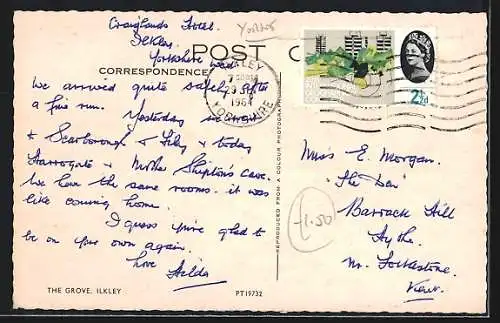 Craiglands Hotel.
Ilkley
Yorkshire Wed.
Yorks
POST C
CORRESPONDENCE
ILKLEY
1964
YORKSHIRE
2½d
We arrived quite safely after
a fine run.
Yesterday we
& Scarborough & Filey & today
Harrogate & Mother Shipton's Cave.
We have the same rooms. it was
like coming home.
I guess you're glad to
be on your own again.
Love
Hilda
REPRODUCED FROM A COLOUR PHOTOGRAPH
Miss E. Morgan.
"The Den"
Barrack Hill
Hythe.
Nr. Folkestone.
Kent.
1.50
THE GROVE, ILKLEY
PT19732